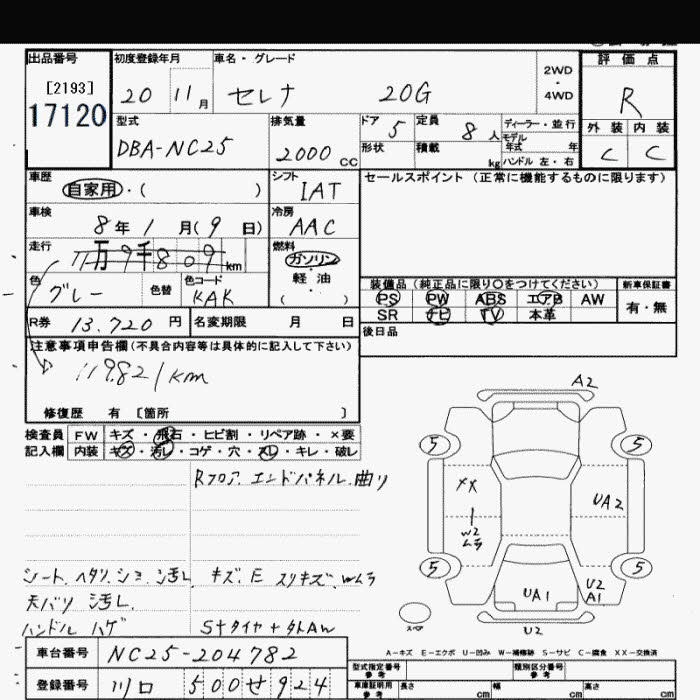 出品番号 初度登録年月 車名・グレード 2WD・4WD 評価点
[2193]
17120 20 11月 セレナ 20G R
型式 排気量 ドア 5 定員 8人 ディーラー・並行 外装 内装
モデル年式 年
DBA-NC25 2000cc 形状 積載 kg ハンドル 左・右 C C
車歴 シフト セールスポイント(正常に機能するものに限ります)
自家用・( ) IAT
車検 冷房
8年1月(9日) AAC
走行 燃料
11万9千809km ガソリン
色 色替 色コード 軽油
グレー KAK ・( )
装備品(純正品に限り○をつけてください) 新車保証書
PS PW ABS エアB AW 有・無
SR ナビ TV 本革
R券 13,720円 名変期限 月 日 後日品
注意事項申告欄(不具合内容等は具体的に記入して下さい)
119821km
修復歴 有 [箇所 ]
検査員 FW キズ・飛石・ヒビ割・リペア跡・×要
記入欄 内装 キズ・汚レ・コゲ・穴・スレ・キレ・破レ
Rフロア.エンドパネル.曲り
シート.ヘタリ.シミ.汚レ キズ.E スリキズ.Wムラ
天バリ 汚レ
ハンドル ハゲ S+タイヤ+外AW
A2
5 5
XX UA2
W2
ムラ
5 5
UA1 U2
A1
スペア U2
A-キズ E-エクボ U-凹み W-補修跡 S-サビ C-腐食 XX-交換済
車台番号 NC25-204782
登録番号 川口 500せ924
型式指定番号 類別区分番号
参考 参考
車庫証明用 長さ cm 幅 cm 高さ cm
参考